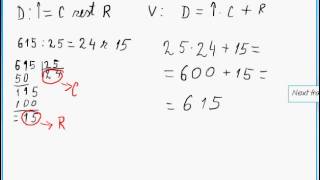 D:î=C rest R
V: D=î.C+R
615:25=24 r 15
25.24+15=
=600+15=
=615
615 25
50 24
115
100
=15
C
R